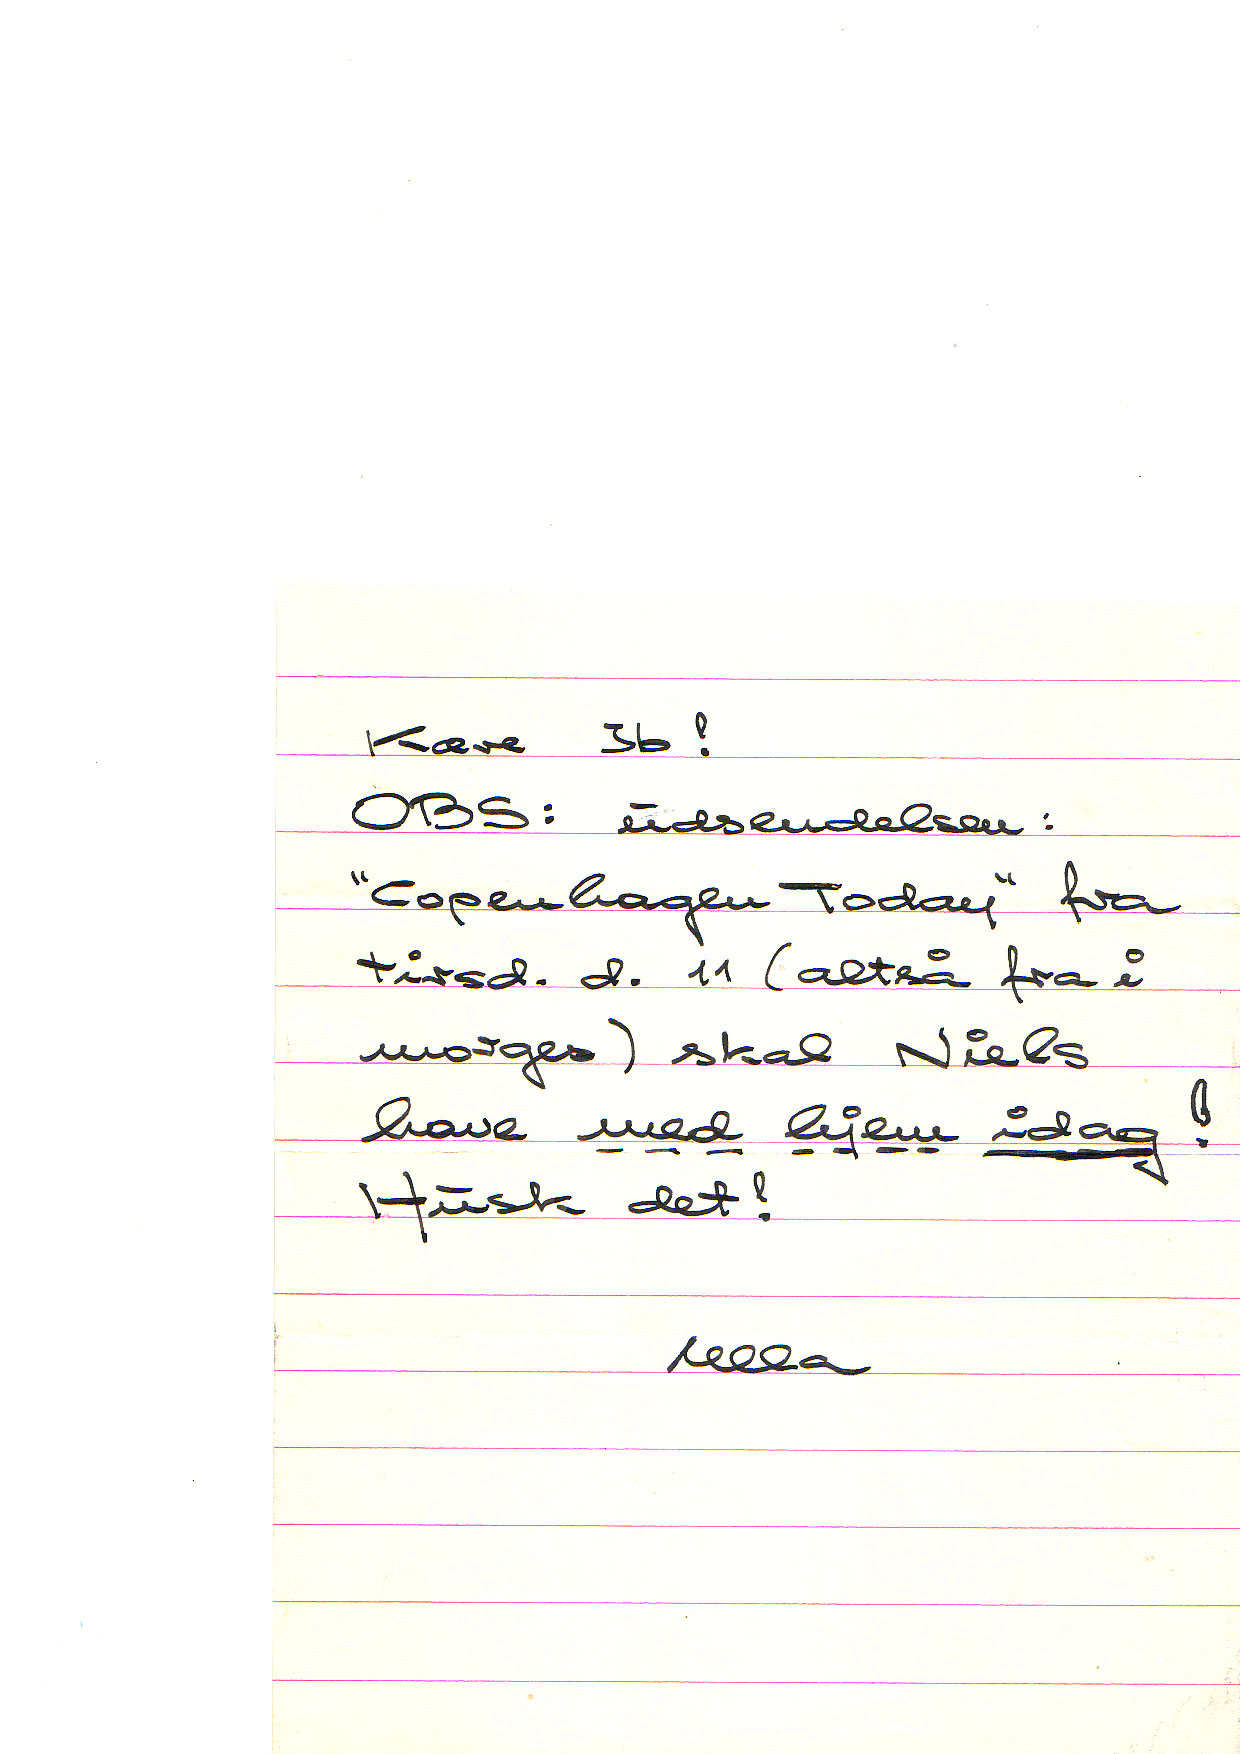 Kære 3b!
OBS: ūdsendelsen:
"Copenhagen Today" fra
tirsd. d. 11 (altså fra i
morges) skal Niels
have med hjem idag!
Hūsk det!
Ulla